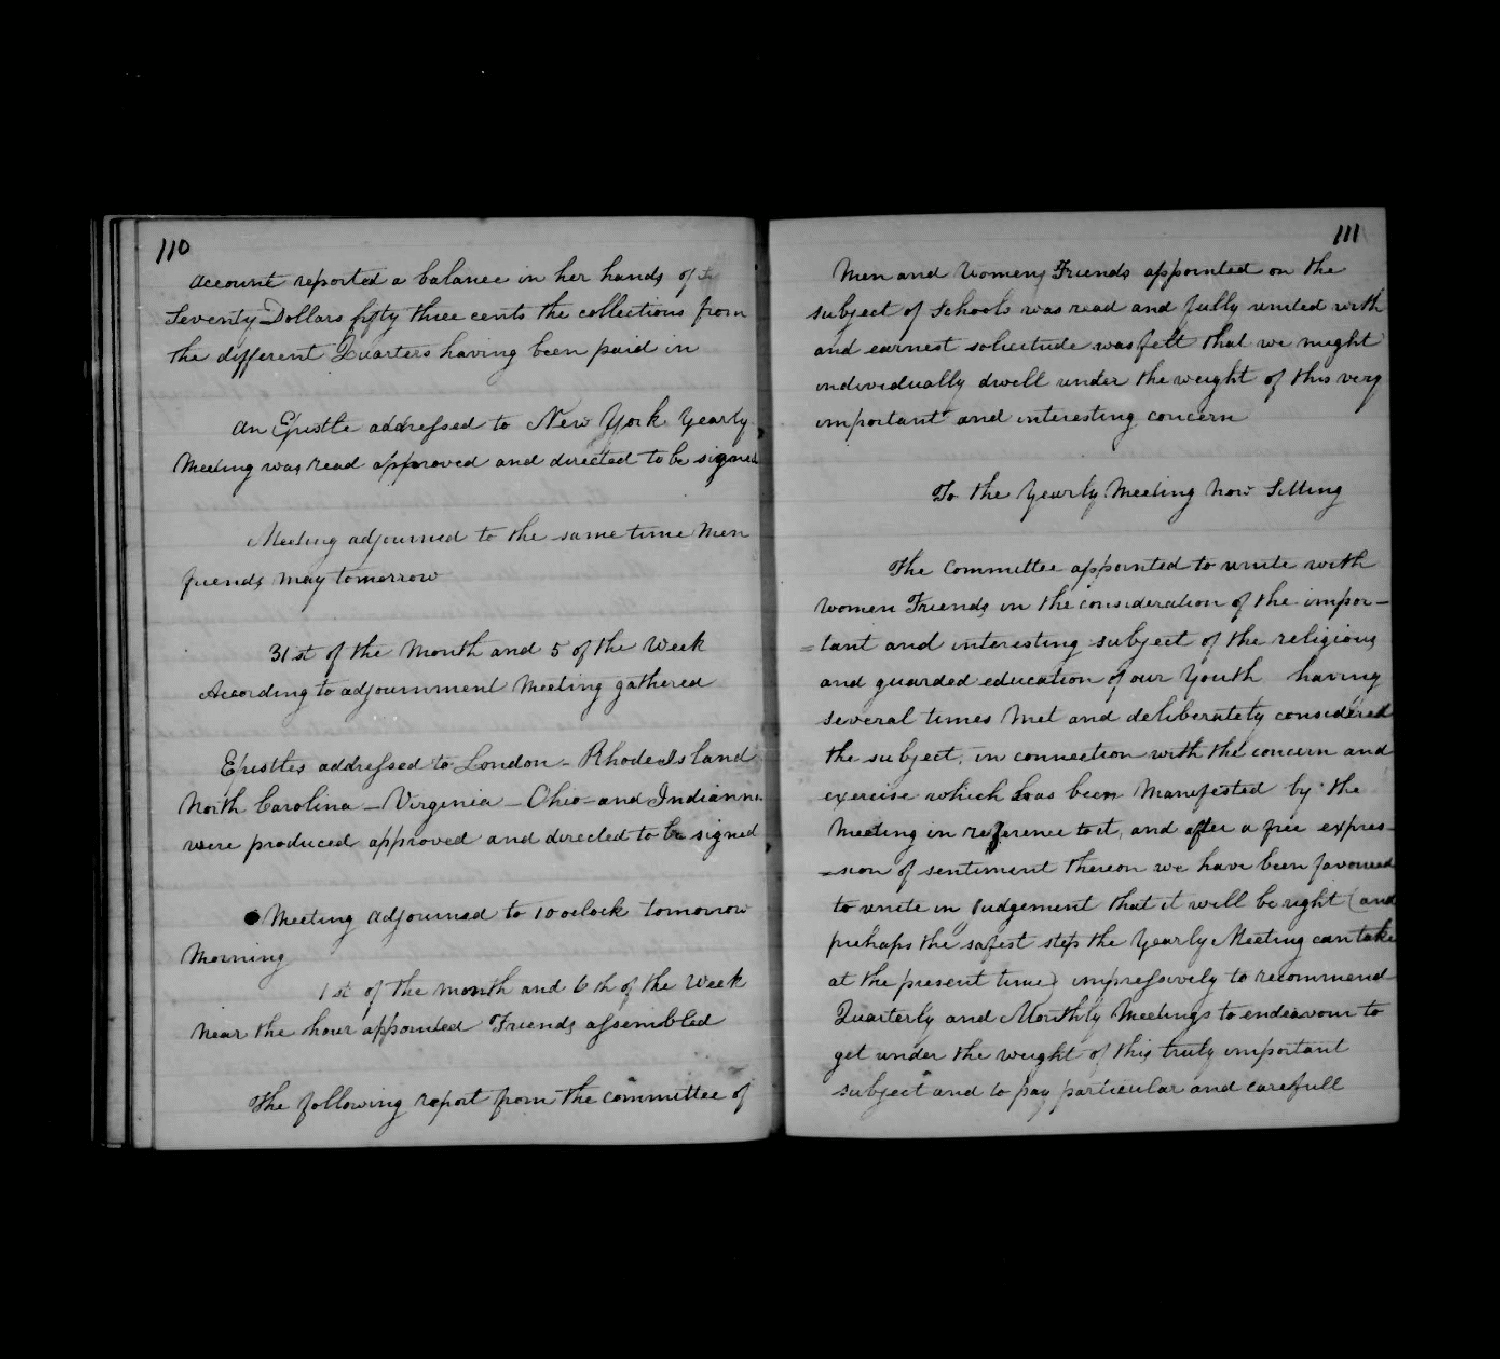 110
account reported a balance in her hands of
Seventy Dollars fifty three cents the collections from
the different Quarters having been paid in
An Epistle addressed to New York Yearly
Meeting was read approved and directed to be signed
Meeting adjourned to the same time Men
friends may tomorrow
31st of the Month and 5 of the Week
According to adjournment Meeting gathered
Epistles addressed to London - Rhode Island
North Carolina - Virginia - Ohio - and Indianna
were produced approved and directed to be signed
Meeting adjourned to 10 oclock tomorrow
Morning
1st of the month and 6th of the Week
Near the hour appointed Friends assembled
The following report from the committee of
111
Men and Womens Friends appointed on the
subject of Schools was read and fully united with
and earnest solicitude was felt that we might
individually dwell under the weight of this very
important and interesting concern
To the Yearly Meeting Now Sitting
The Committee appointed to unite with
Women Friends in the consideration of the impor-
=tant and interesting subject of the religious
and guarded education of our Youth having
several times Met and deliberately considered
the subject, in connection with the concern and
exercise which has been Manifested by the
Meeting in reference to it, and after a free expres-
-sion of sentiment thereon we have been favoured
to unite in Judgement that it will be right (and
perhaps the safest step the Yearly Meeting can take
at the present time) impressively to recommend
Quarterly and Monthly Meetings to endeavour to
get under the weight of this truly important
subject and to pay particular and carefull